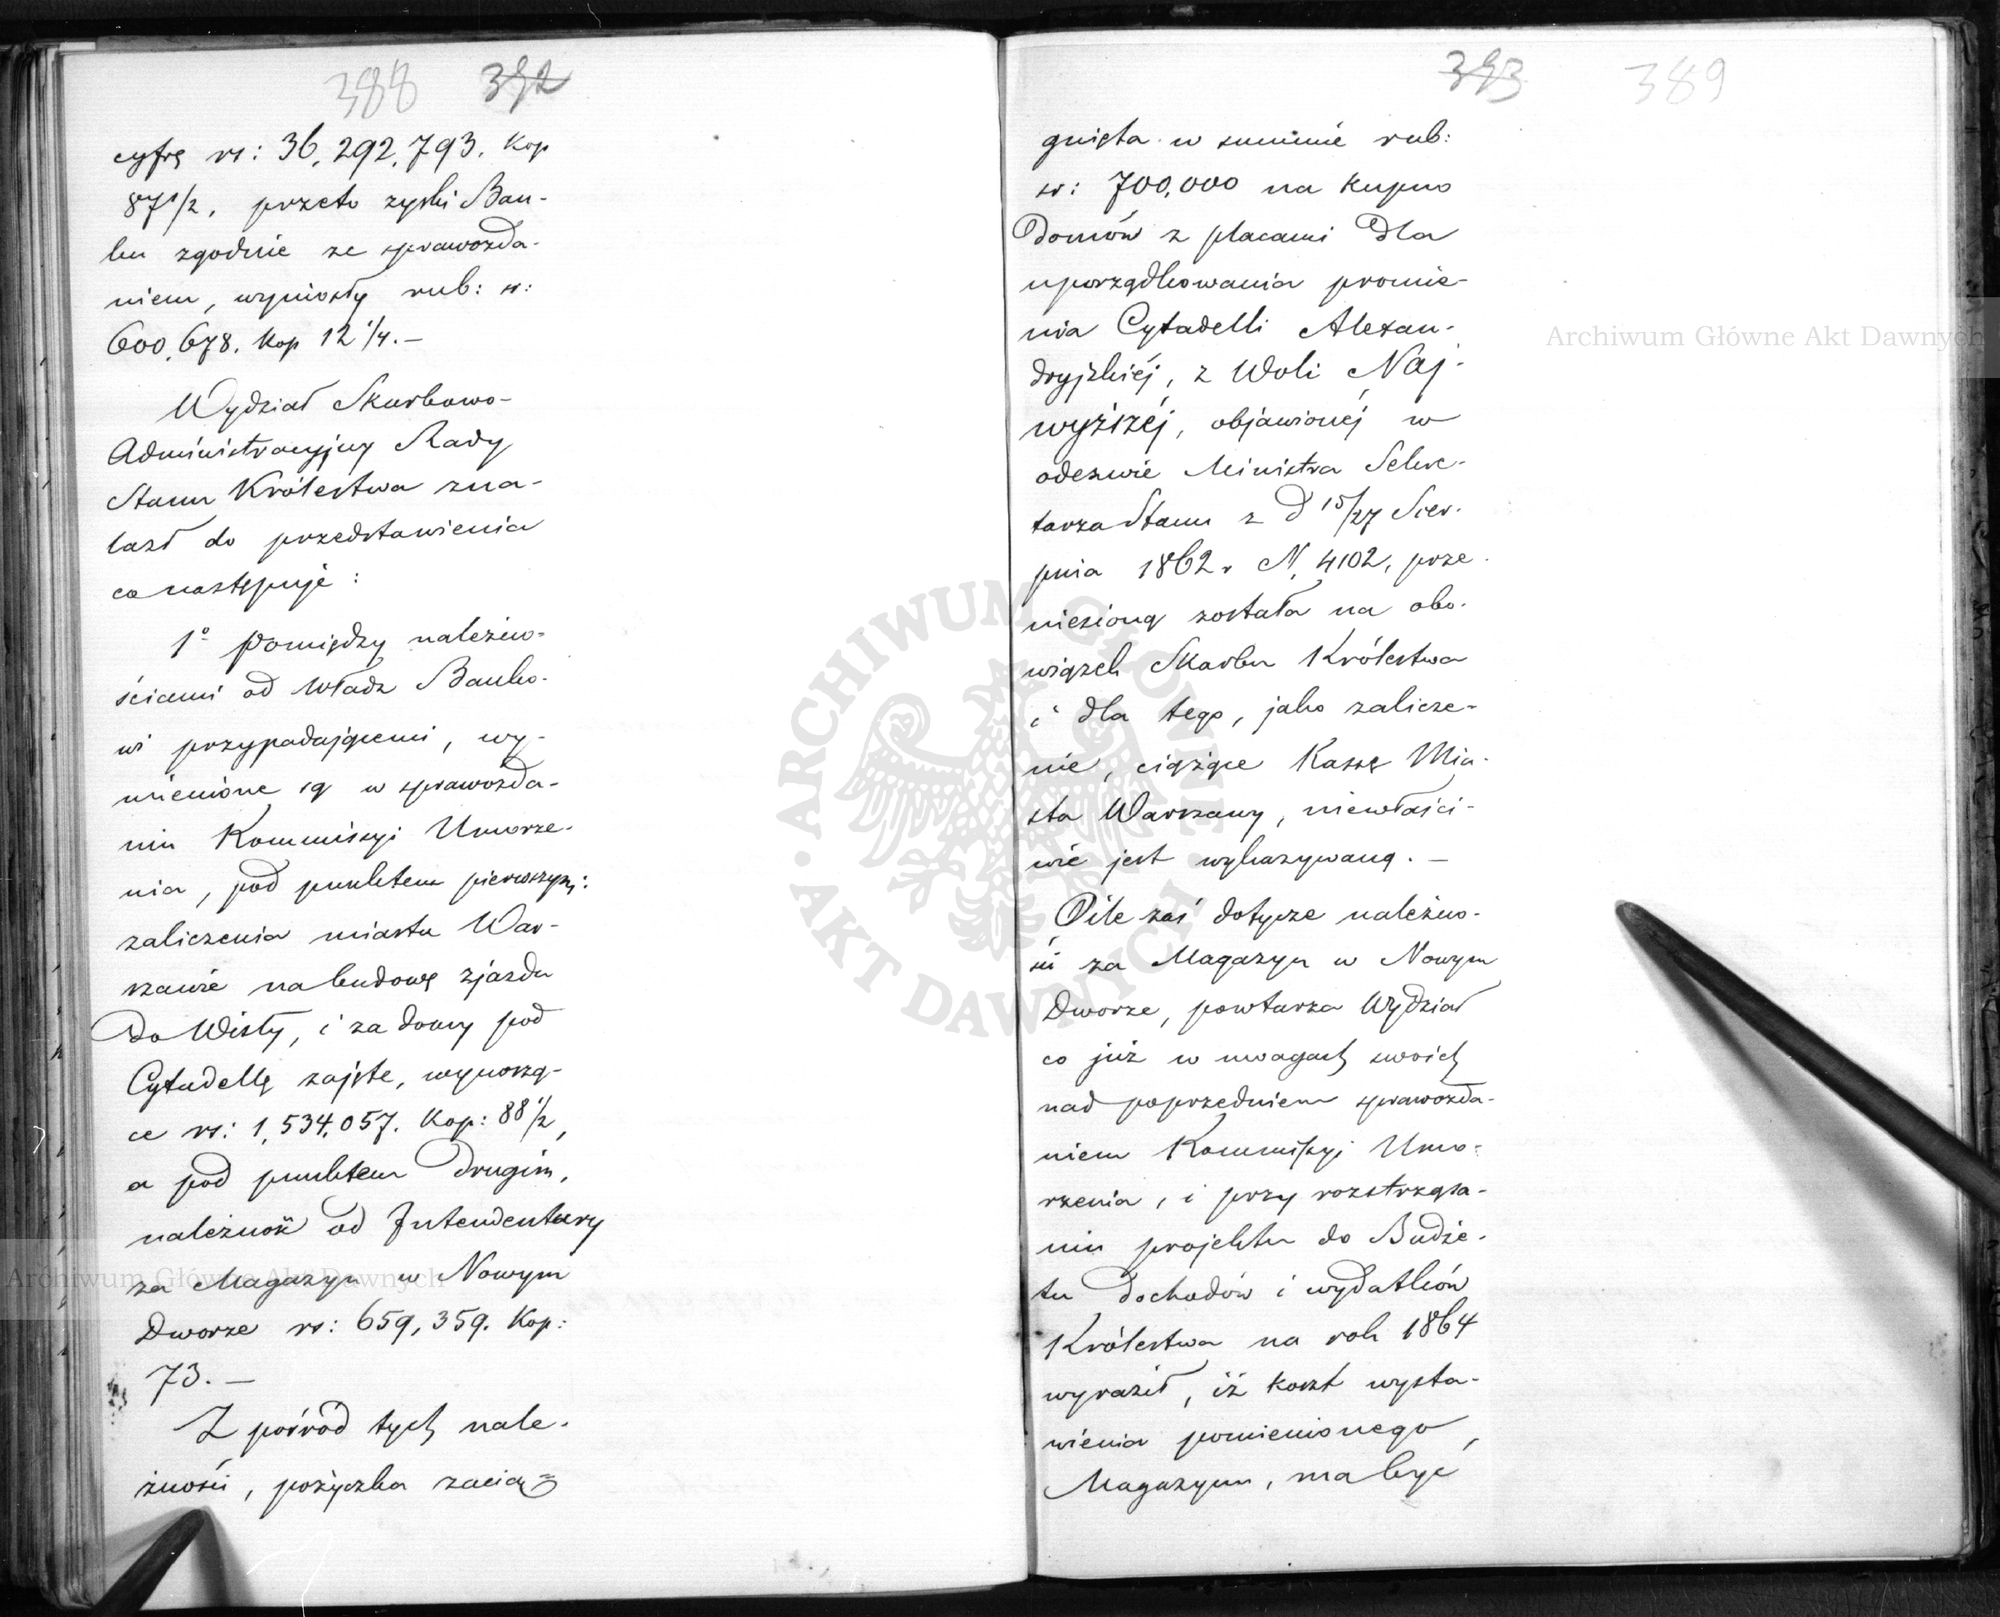 388 392
cyfrę rs: 36,292,793. Kop
87 1/2, przeto zyski Ban-
ku zgodnie ze sprawozda-
niem, wyniosły rub: sr:
600,678. Kop 12 1/4. —
Wydział Skarbowo-
Administracyjny Rady
Stanu Królestwa zna-
lazł do przedstawienia
co następuje:
1º Pomiędzy należno-
ściami od Władz Banko-
wi przypadającemi, wy-
mienione są w sprawozda-
niu Kommissyi Umorze-
nia, pod punktem pierwszym:
zaliczenia miastu War-
szawie na budowę zjazdu
do Wisły, i za domy pod
Cytadellę zajęte, wynoszą-
ce rs: 1,534,057. Kop: 88 1/2,
a pod punktem drugim,
należność od Intendentury
za Magazyn w Nowym
Dworze rs: 659,359. Kop:
73. —
Z pośród tych nale-
żności, pożyczka zacią=
393 389
gnięta w summie rub:
sr: 700,000 na kupno
Domów z placami dla
uporządkowania promie-
nia Cytadelli Alexan-
dryjskiéj, z Woli Naj-
wyższéj, objawionéj w
odezwie Ministra Sekre-
tarza Stanu z d 15/27 Sier-
pnia 1862 r N. 4102, prze-
niesioną została na obo-
wiązek Skarbu Królestwa
i dla tego, jako zalicze-
nie, ciążące Kassę Mia-
sta Warszawy, niewłaści-
wie jest wykazywaną. —
Oile zaś dotycze należno-
ści za Magazyn w Nowym
Dworze, powtarza Wydział
co już w uwagach swoich
nad poprzedniem sprawozda-
niem Kommissyi Umo-
rzenia, i przy roztrząsa-
niu projektu do Budże-
tu dochodów i wydatków
Królestwa na rok 1864
wyraził, iż koszt wysta-
wienia pomienionego
Magazynu, ma być
Archiwum Główne Akt Dawnych
Archiwum Główne Akt Dawnych
ARCHIWUM GŁÓWNE AKT DAWNYCH